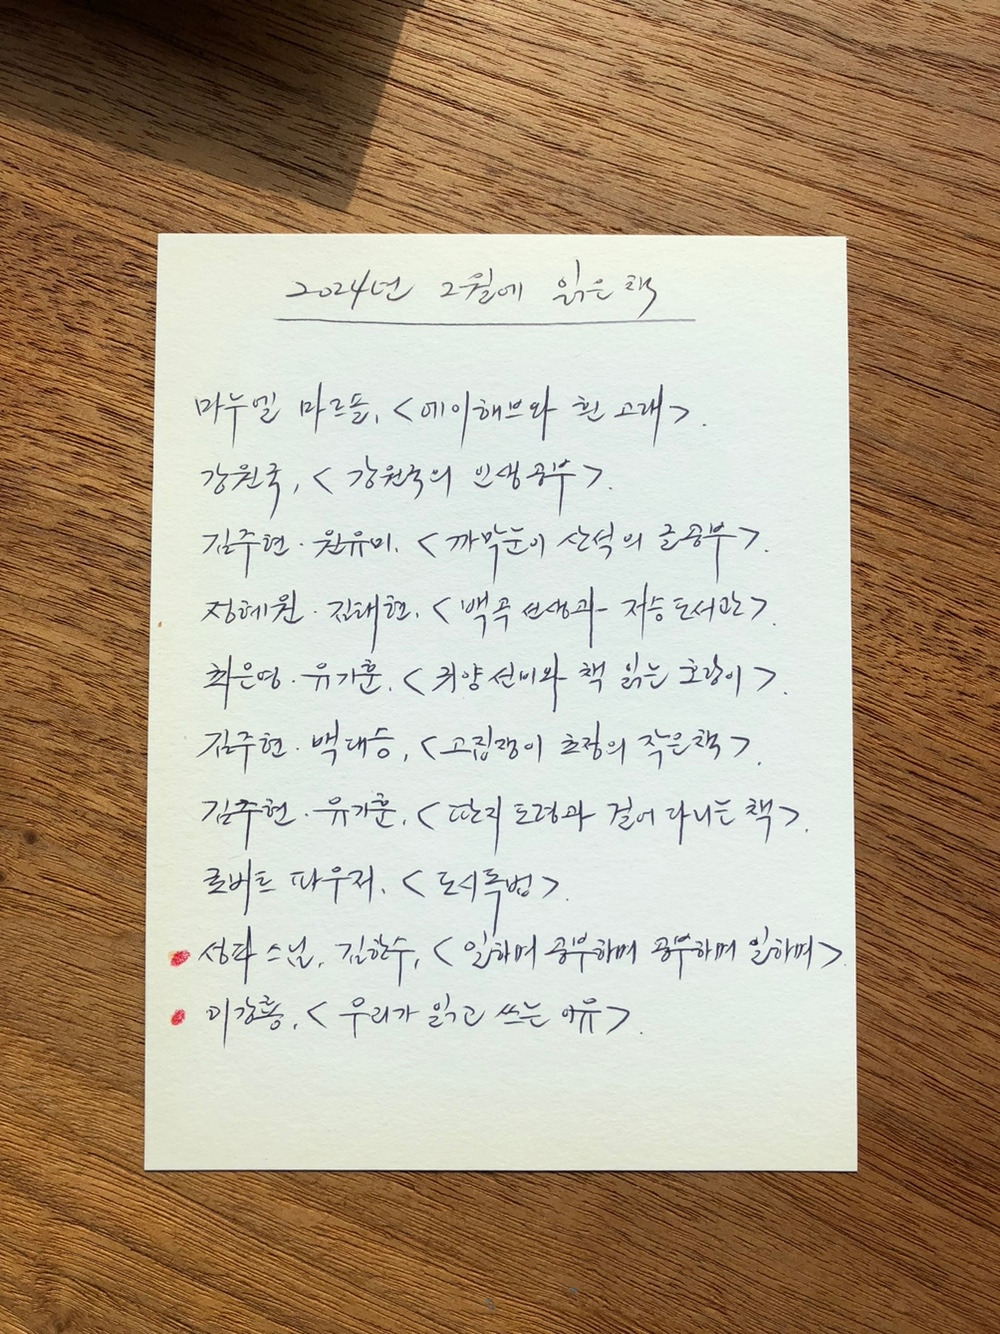 2024년 2월에 읽은 책
마누엘 마르솔, <에이해브와 흰 고래>.
강원국, <강원국의 인생공부>.
김주현·원유미, <까막눈이 산석의 글공부>.
정혜원·김태현, <백곡 선생과 저승 도서관>.
최은영·유기훈, <귀양 선비와 책 읽는 호랑이>.
김주현·백대승, <고집쟁이 초정의 작은 책>.
김주현·유기훈, <딴지 도령과 걸어 다니는 책>.
로버트 파우저, <도시독법>.
성파 스님, 김한수, <일하며 공부하며 공부하며 일하며>.
이강룡, <우리가 읽고 쓰는 이유>.